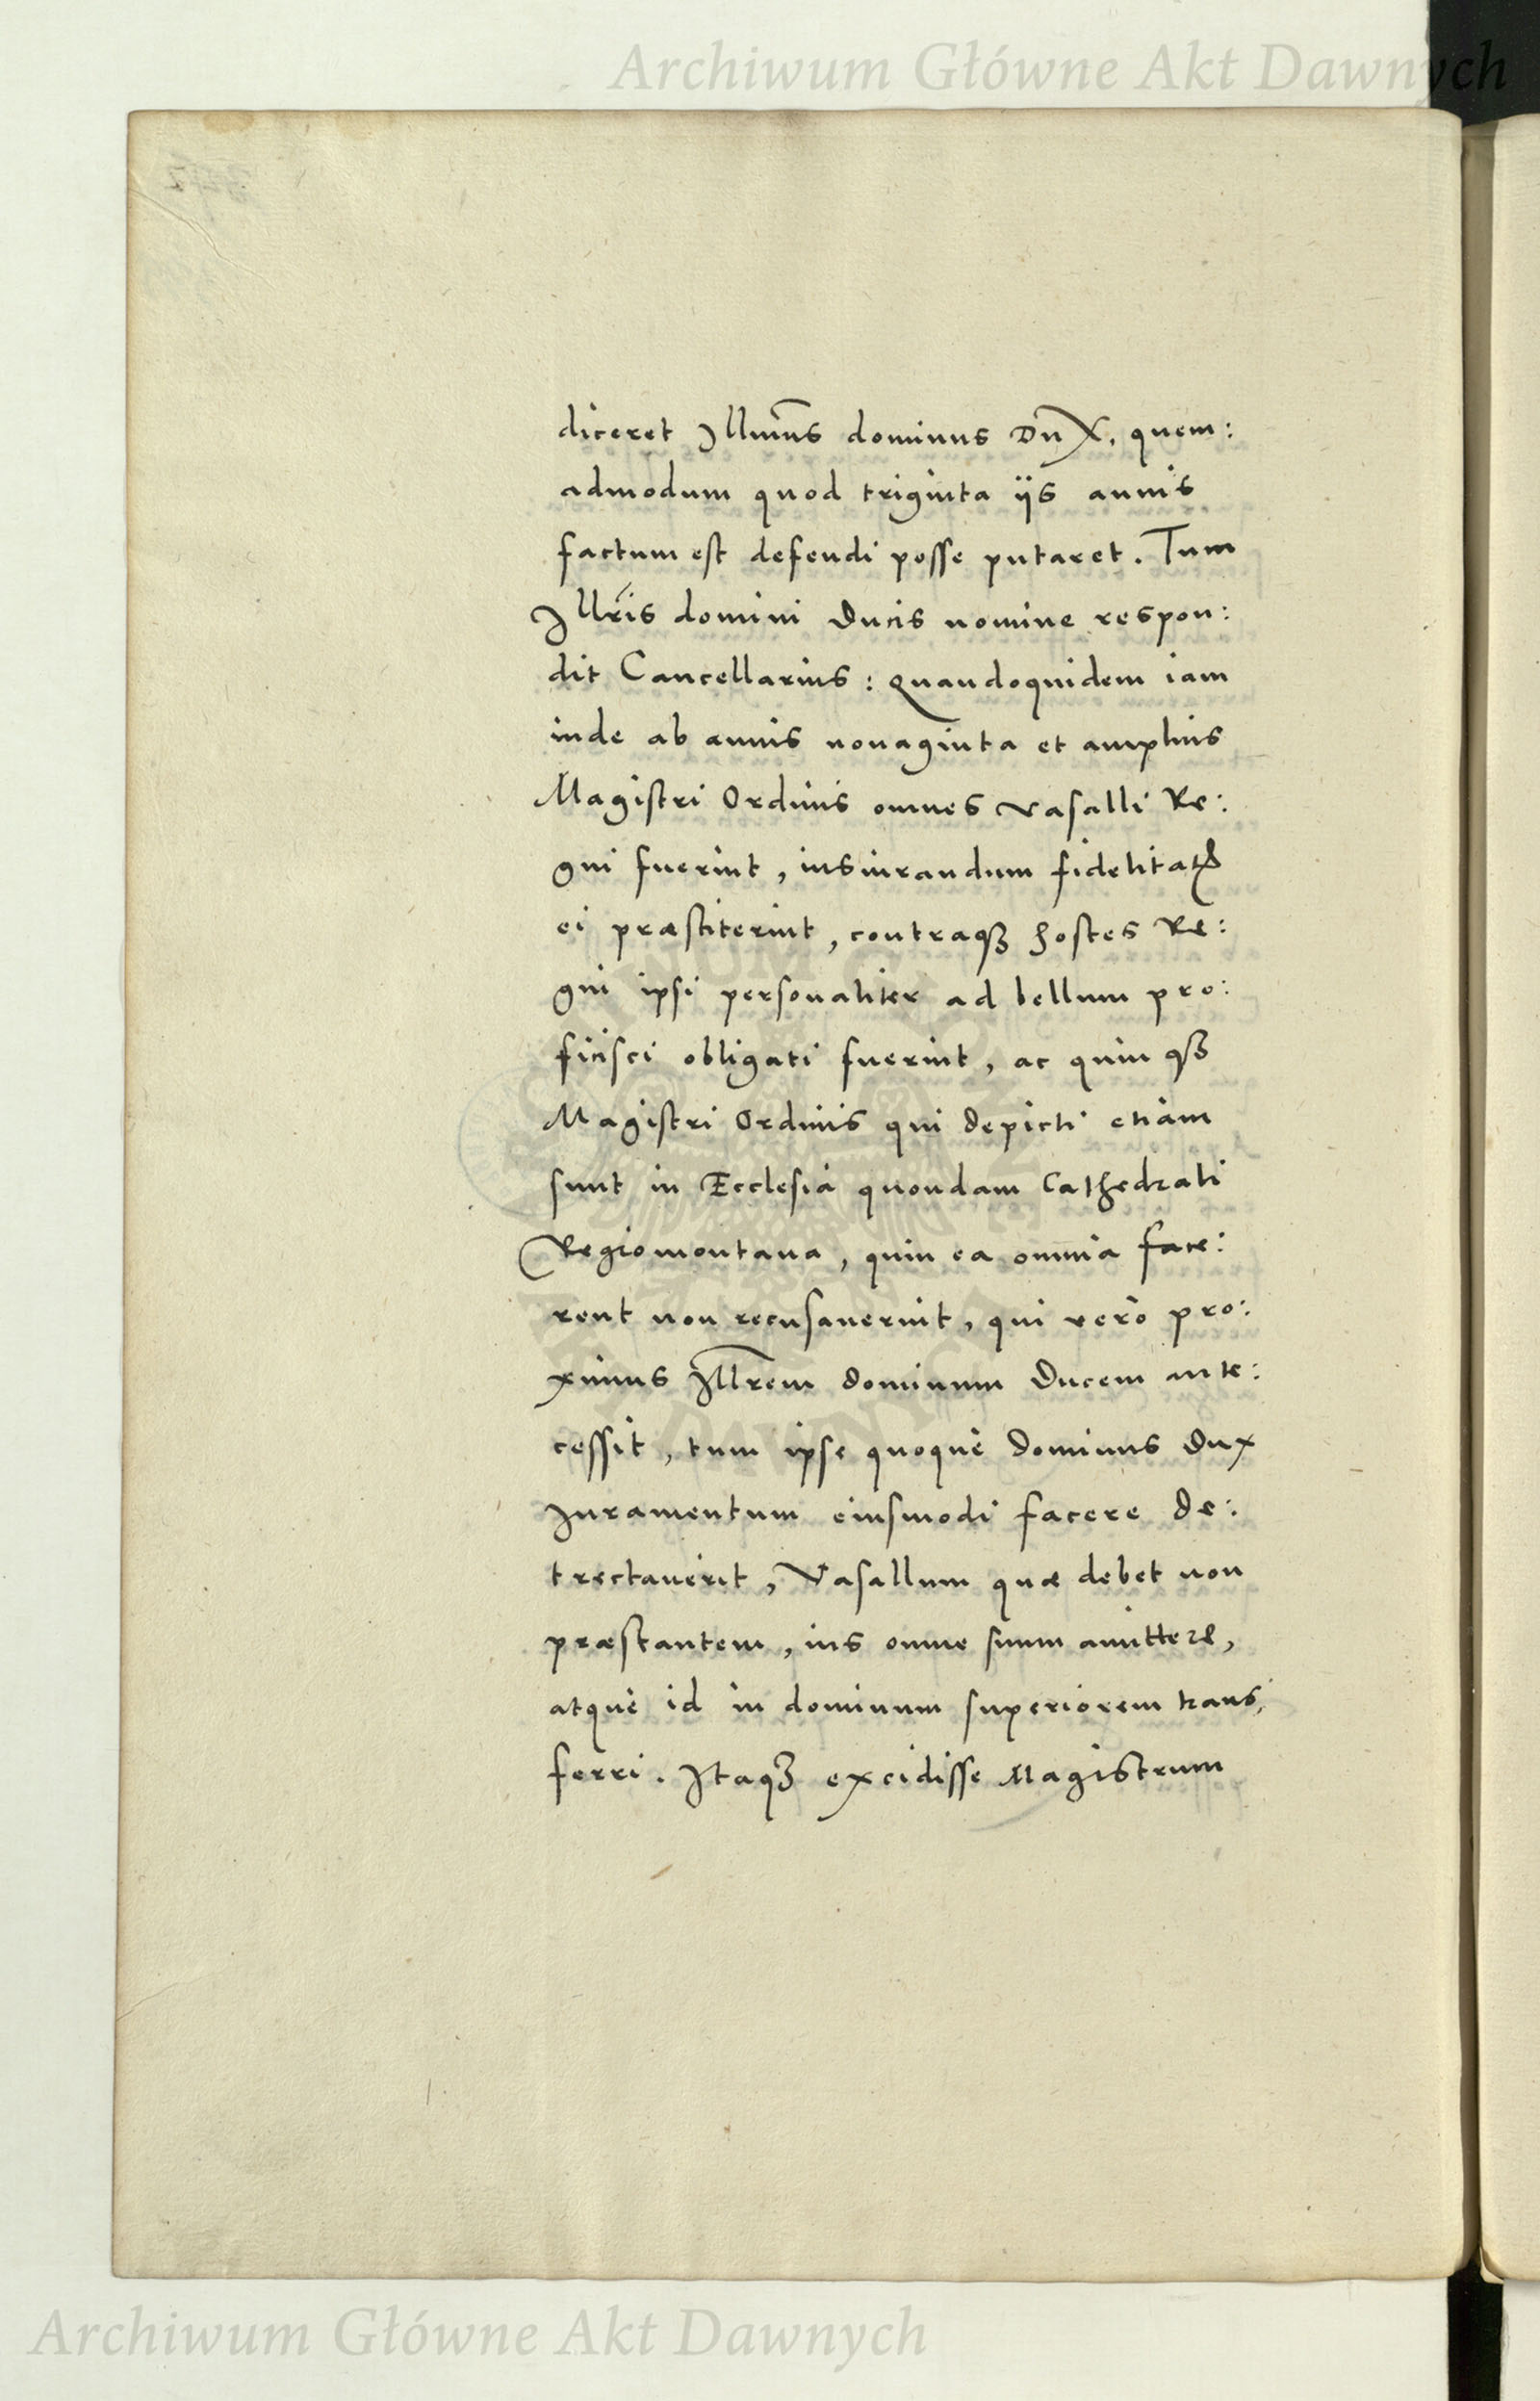 Archiwum Główne Akt Dawnych
diceret Illmus dominus Dux, quem:
admodum quod triginta ijs annis
factum est defendi posse putaret. Tum
Illris domini Ducis nomine respon:
dit Cancellarius: Quandoquidem iam
inde ab annis nonaginta et amplius
Magistri Ordinis omnes vasalli Re:
gni fuerint, iusiurandum fidelitatis
ei præstiterint, contraqꝫ hostes Re:
gni ipsi personaliter ad bellum pro:
ficisci obligati fuerint, ac quinqꝫ
Magistri Ordinis qui depicti etiam
sunt in Ecclesia quondam Cathedrali
Regiomontana, quin ea omnia face:
rent non recusauerint, qui verò pro:
ximus Illrem dominum Ducem ante:
cessit, tum ipse quoque dominus Dux
Iuramentum eiusmodi facere de:
trectauerit, Vasallum quæ debet non
præstantem, ius omne suum amittere,
atque id in dominum superiorem trans:
ferri. Itaqꝫ excidisse Magistrum
Archiwum Główne Akt Dawnych